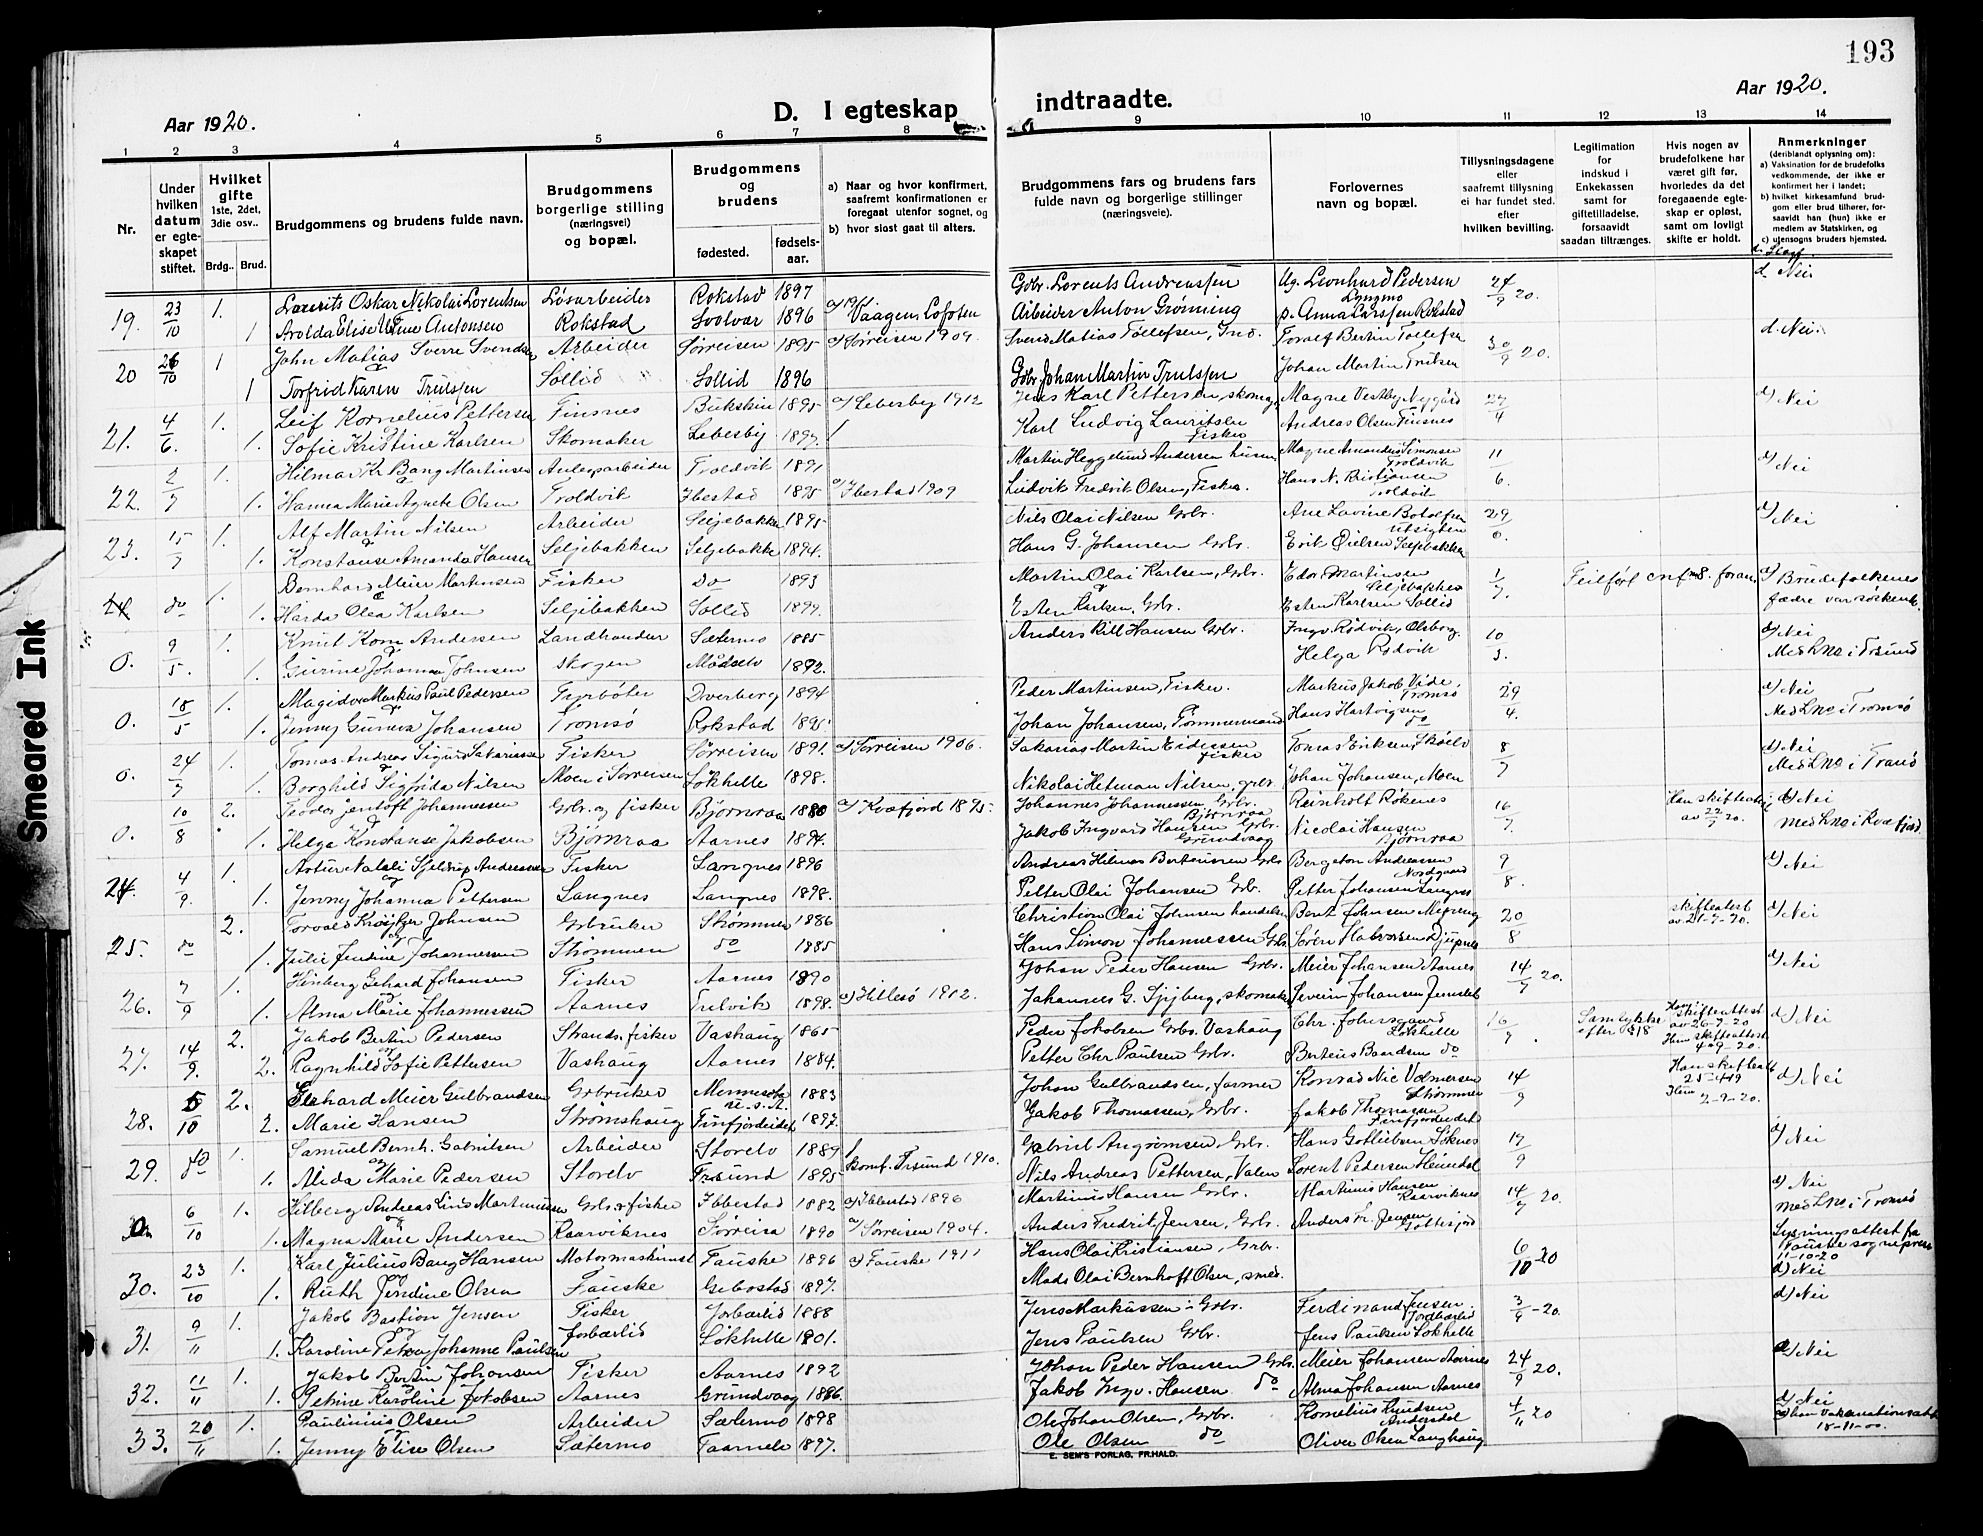 193
Aar 1920.
D. I egteskap indtraadte.
Aar 1920.
1 2 3 4 5 6 7 8 9 10 11 12 13 14
Nr.
Under hvilken datum er egteskapet stiftet.
Hvilket gifte 1ste, 2det, 3die osv..
Brdg.. Brud.
Brudgommens og brudens fulde navn.
Brudgommens borgerlige stilling (næringsvei) og bopæl.
Brudgommens og brudens
fødested.
fødselsaar.
a) Naar og hvor konfirmert, saafremt konfirmationen er foregaat utenfor sognet, og
b) hvor sidst gaat til alters.
Brudgommens fars og brudens fars fulde navn og borgerlige stillinger (næringsveie).
Forlovernes navn og bopæl.
Tillysningsdagene eller saafremt tillysning ei har fundet sted, efter hvilken bevilling.
Legitimation for indskud i Enkekassen samt for giftetilladelse, forsaavidt saadan tiltrænges.
Hvis nogen av brudefolkene har været gift før, hvorledes da det foregaaende egteskap er opløst, samt om lovligt skifte er holdt.
Anmerkninger
(deriblandt oplysning om):
a) Vaksination for de brudefolks vedkommende, der ikke er konfirmert her i landet;
b) hvilket kirkesamfund brudgom eller brud tilhører, forsaavidt han (hun) ikke er medlem av Statskirken, og
c) utensogns bruders hjemsted.
d. Slegt
19. 23/10 1. Lorents Oskar Nikolai Lorentsen Løsarbeider Rokstad 1897 Gbr. Lorents Andreassen Ug. Leonhard Pedersen Lyngmo 24/9 20. d. Nei
1 Rokstad Svolvær 1896 Vaagen, Lofoten Arbeider Anton Grønning p. Anna Larssen Rokstad
20 26/10 1 John Matias Sverre Svendsen Arbeider Sørreisen 1895 a) Sørreisen 1909. Svend Matias Tollefsen, Ind. Toralf Bertin Tollefsen 30/9 20. d. Nei.
1 Torfrid Karen Trulssen Sollid Sollid 1896 Gbr. Johan Martin Trulssen Johan Martin Trulsen
21. 4/6. 1. Leif Kornelius Pettersen Finsnes 1895 a) Lebesby 1912 Jens Karl Pettersen, skomag. Magne Vestby Nygård d) Nei
1. Sofie Kristine Karlsen Skomaker Lebesby Karl Ludvig Lauritsen Fisker Andreas Olsen Finsnes
22. 2/7 1. Hilmar Kr. Bang Martinsen Anlegsarbeider Troldvik 1891 Martin Heggelund Andersen Magne Amandus Simonsen Troldvik 11/6. d) Nei
1. Hanna Marie Agnete Olsen Troldvik Ibestad 1895 a) Ibestad 1909 Ludvik Fredrik Olsen, Fisker. Hans N. Kristiansen Troldvik
23. 15/7 1. Alf Martin Nilsen Arbeider Seljebakken 1895 Nils Olai Nilsen Gbr. d) Nei
1. Konstanse Amanda Hansen Seljebakken Seljebakke 1894. Hans G. Johansen Gbr.
24 do 1. Bernhard Meier Martinsen Fisker Do 1893 Martin Olai Karlsen, Gbr. Edor Martinsen Seljebakken 1/7. Feilført d) Brudefolkenes
1. Harda Olea Karlsen Seljebakken Sollid Esten Karlsen, Gbr. Esten Karlsen Sollid fædre var søskenb.
0. 9/5. 1. Knut Korn. Andersen Landhandler Sætermo 1885 Anders Kill Hansen Gbr. Ingv. Rødvik, Olsborg. 10/3. d) Nei
1. Gurine Johanna Johnsen Skogen Målselv 1892. Helga Rødvik
0. 18/5 1. Markus Paul Pedersen Fyrbøter Dverberg 1894 Peder Martinsen, Fisker. Markus Jakob Vide, Tromsø 29/4. d) Nei
1. Jenny Gurina Johansen Tromsø Rokstad 1895. Johan Johansen, Tømmermand Hans Hartvigsen do Med Lno i Tromsø
0. 24/7 1. Tomas Andreas Sigurd Sakariassen Fisker Sørreisen 1891. a) Sørreisen 1906. Sakarias Martin Fisker Tomas Eriksen, 8/7 d) Nei
1. Borghild Sigfrida Nilsen Moen i Sørreisen Løkhelle 1898. Nikolai Helman Nilsen, grbr. Johan Johansen, Moen Med Lno i Tranø
0. 10/8 2. Teodor Jentoft Johannessen Grbr. og fisker Bjørnraa 1880 a) Kvæfjord 1895. Johannes Johannessen, Grbr. Bjørnraa Reinholt Røkenes 16/7. av 22/7 20. d) Nei
1. Helga Konstanse Jakobsen Bjørnraa Aarnes 1894. Jakob Ingvard Hansen Grbr. Grundvaag Nicolai Hansen Bjørnraa med Lno i Kvæfjord
24. 4/9. 1. Artur Natali Sjeldrup Andreassen Fisker Langnes 1896 Andreas Hilmar Berteussen Grbr. Bergeton Andreassen Nordgaard 9/8. d) Nei
1. Jenny Johanna Pettersen Langnes Langnes 1898. Petter Olai Johansen Gbr. Petter Johansen Langnes
25. do 2. Torvald Johnsen Grbruker Strømmen 1886 Christian Olai Johnsen Bent Johnsen 20/8 skifteattest av 21-7-20. d) Nei
1. Julie Jendine Johannessen Strømmen do 1885 Hans Simon Johannessen Grbr. Søren Halvorsen Djupnes
26. 7/9 1. Hinberg Gehard Johansen Fisker Aarnes 1890 Johan Peder Hansen Grbr. Meier Johansen Aarnes 14/7 20. d) Nei
1. Alma Marie Johannessen Aarnes Trelvik 1898. a) Hillesø 1912. Johannes G. Spjberg, skomaker Severin Johansen
27. 14/9. 2. Jakob Bertin Pedersen Strands. fisker Vashaug 1865 Peder Jakobsen Grbr. Vashaug Chr. Johnsgaard Løkhelle 16/7. Samtykke efter § 18 skifteattest av 26-7-20 d) Nei
2. Ragnhild Sofie Pettersen Vashaug Aarnes 1884. Petter Chr. Paulsen Grbr. Berteus Baardsen do skifteattest 4-9-20.
28. 5/10 2. Gerhard Meier Gulbrandsen Grbruker Mennesota U.S.A. 1883 Johan Gulbrandsen, farmer Konrad Nic Volmersen Strømmen 14/9 Han skifteatt. d) Nei
2. Marie Hansen Strømshaug Finfjordeidet 1897. Jakob Thomassen, Grbr. Jakob Thomassen Finfjordeidet 2-9-20.
29. do 1. Samuel Bernh. Gabrilsen Arbeider Storelv 1889 Gabriel Angrimsen, Grbr. Hans Gotliebsen Løknes 17/9 d) Nei
1. Alida Marie Pedersen Storelv Trsund 1895 Konf. Trsund 1910. Nils Andreas Pettersen, Valen Lorent Pedersen Heimdal
0 6/10 1. Hilberg Andreas Lind Martinussen Grbr. & fisker Ibbestad 1882 a) Ibbestad 1896 Martinus Hansen Grbr. Martinus Hansen Kaarviknes 14/7 20. d) Nei
1. Magna Marie Andersen Kaarviknes Sørreisa 1890 a) Sørreisen 1904. Anders Fredrik Jensen, Grbr. Anders Fr. Jensen Gottesjord med Lno i Tromsø
30. 23/10 1. Karl Julius Bang Hansen Motormaskinist Fauske 1896 a) Fauske 1911 Hans Olai Kristiansen, Grbr. 6/10 20 Lysningsattest fra Fauske sogneprest 11-10-20
1. Ruth Jendine Olsen Fauske Gibostad 1897. Mads Olai Bernhoft Olsen, smed. d) Nei
31. 9/11 1. Jakob Bastian Jensen Fisker Jorbærlid 1888 Jens Markussen - Grbr. Ferdinand Jensen Jordbærlid 3/9 - 20. d) Nei
1. Karoline Petra Johanne Paulsen Jorbærlid Løkhelle 1901. Jens Paulsen Grbr. Jens Paulsen Løkhelle
32. 11/11 1. Jakob Bertin Johansen Fisker Aarnes 1892 Johan Peder Hansen Grbr. Meier Johansen Aarnes 24/9 20. d) Nei
1. Petrine Karoline Jakobsen Aarnes Grundvaag 1886. Jakob Ingv. Hansen do Alma Johansen Aarnes
33. 20/11 1. Paulinius Olsen Arbeider Sætermo 1898 Ole Johan Olsen, Grbr. Kornelius Knudsen Andersdal 4/11 20 d) Nei
1. Jenny Elise Olsen Sætermo Taarnelv 1897. Ole Olsen do Oliver Olsen Langhaug
E. SEM'S FORLAG, FR.HALD.
Smeared Ink